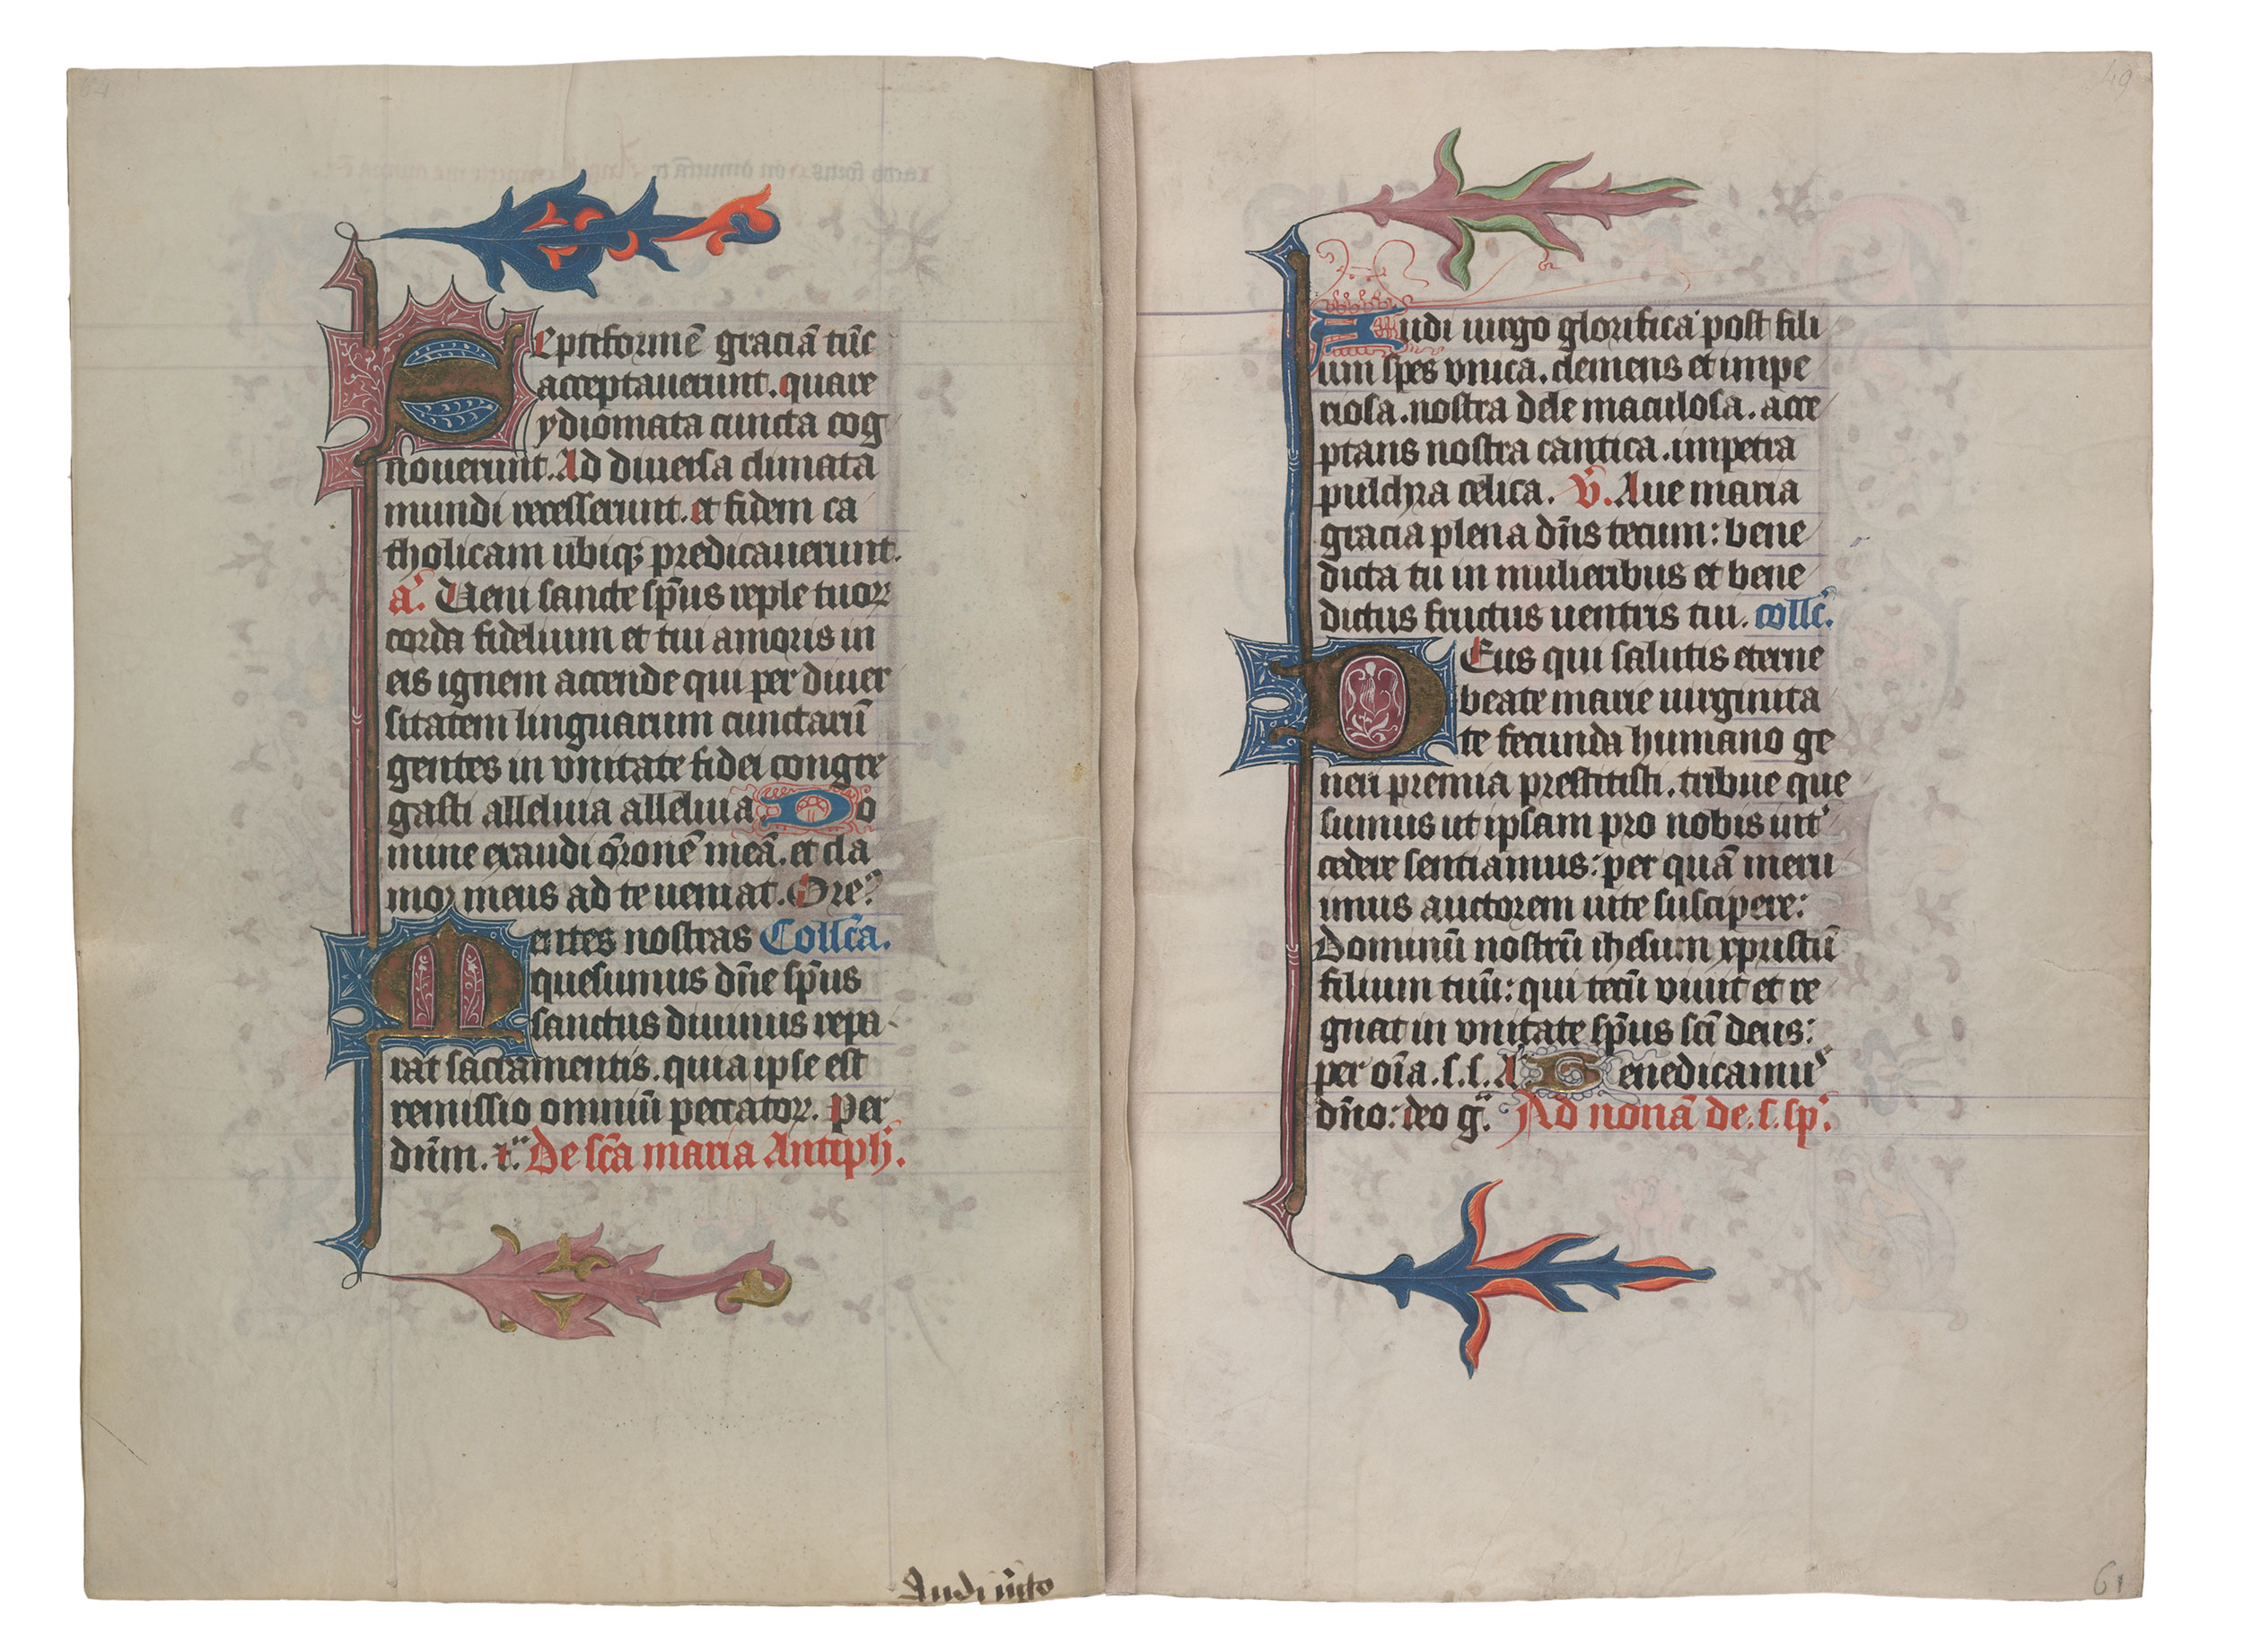 Septiformē graciā tūc
acceptauerunt. quare
ydiomata cuncta cog
nouerunt. Ad diuersa climata
mundi recesserunt. et fidem ca
tholicam ubiqꝫ predicauerunt.
a. Ueni sancte sp̄us reple tuoꝝ
corda fidelium et tui amoris in
eis ignem accende qui per diuer
sitatem linguarum cunctarū
gentes in vnitate fidei congre
gasti alleluia alleluia. Do
mine exaudi ōronē meā. et cla
mor meus ad te ueniat. Ore
Mentes nostras Collc̄a.
quesumus dn̄e sp̄us
sanctus diuinus repa
rat sacramentis. quia ipse est
remissio omniū peccatoꝝ. Per
dn̄m. r. De sc̄a maria Antiph.
Audi uirgo
49
Audi uirgo glorifica post fili
um spes vnica. clemens et impe
riosa. nostra dele maculosa. acce
ptans nostra cantica. impetra
pulchra celica. V. Aue maria
gracia plena dn̄s tecum: bene
dicta tu in mulieribus et bene
dictus fructus uentris tui. collc.
Deus qui salutis eterne
beate marie uirginita
te fecunda humano ge
neri premia prestitisti. tribue que
sumus ut ipsam pro nobis int
cedere sentiamus: per quā meru
imus auctorem uite suscipere:
Dominū nostrū ihesum xpristū
filium tuū: qui tecū viuit et re
gnat in vnitate sp̄us sc̄i deus:
per oīa. s. s. A Benedicamus
dn̄o: deo g. Ad nonā de. s. sp.
61